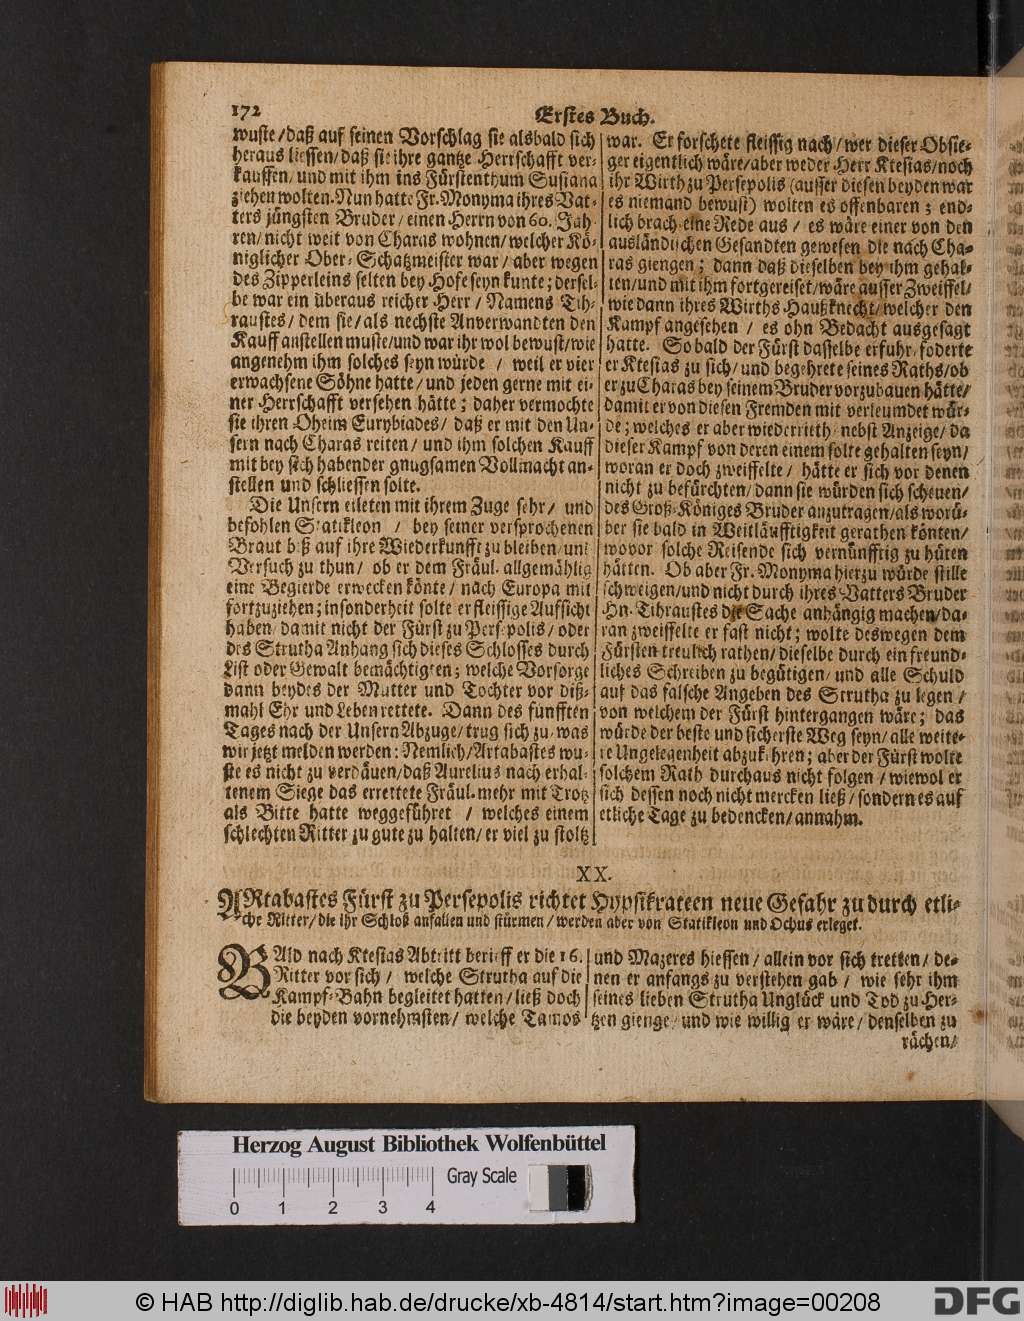 172
Erstes Buch.
wuste/daß auf seinen Vorschlag sie alsbald sich
heraus liessen/daß sie ihre gantze Herrschafft ver-
kauffen/und mit ihm ins Fürstenthum Susiana
ziehen wolten. Nun hatte Fr. Monyma ihres Vat-
ters jüngsten Bruder/einen Herrn von 60. Jah-
ren/nicht weit von Charas wohnen/welcher Kö-
niglicher Ober-Schatzmeister war/aber wegen
des Zipperleins selten bey Hofe seyn kunte; dersel-
be war ein überaus reicher Herr/Namens Tih-
raustes/dem sie/als nechste Anverwandten den
Kauff anstellen muste/und war ihr wol bewust/wie
angenehm ihm solches seyn würde/weil er vier
erwachsene Söhne hatte/und jeden gerne mit ei-
ner Herrschafft versehen hätte; daher vermochte
sie ihren Oheim Eurybiades/daß er mit den Un-
sern nach Charas reiten/und ihm solchen Kauff
mit bey sich habender gnugsamen Vollmacht an-
stellen und schliessen solte.
Die Unsern eileten mit ihrem Zuge sehr/und
befohlen Statikleon/bey seiner versprochenen
Braut biß auf ihre Wiederkunfft zu bleiben/und
Versuch zu thun/ob er dem Fräul. allgemählig
eine Begierde erwecken könte/nach Europa mit
fortzuziehen; insonderheit solte er fleissige Aufsicht
haben/damit nicht der Fürst zu Persepolis/oder
des Strutha Anhang sich dieses Schlosses durch
List oder Gewalt bemächtigten; welche Vorsorge
dann beydes der Mutter und Tochter vor diß-
mahl Ehr und Leben rettete. Dann des fünfften
Tages nach der Unsern Abzuge/trug sich zu/was
wir jetzt melden werden: Nemlich/Artabastes wu-
ste es nicht zu verdäuen/daß Aurelius nach erhal-
tenem Siege das errettete Fräul. mehr mit Trotz
als Bitte hatte weggeführet/welches einem
schlechten Ritter zu gute zu halten/er viel zu stoltz
war. Er forschete fleissig nach/wer dieser Obsie-
ger eigentlich wäre/aber weder Herr Ktesias/noch
ihr Wirth zu Persepolis (ausser diesen beyden war
es niemand bewust) wolten es offenbaren; end-
lich brach eine Rede aus/es wäre einer von den
ausländischen Gesandten gewesen die nach Cha-
ras giengen; dann daß dieselben bey ihm gehal-
ten/und mit ihm fortgereiset/wäre ausser Zweiffel/
wie dann ihres Wirths Haußknecht/welcher den
Kampf angesehen/es ohn Bedacht ausgesagt
hatte. So bald der Fürst dasselbe erfuhr/foderte
er Ktesias zu sich/und begehrete seines Raths/ob
er zu Charas bey seinem Bruder vorzubauen hätte/
damit er von diesen Fremden mit verleumdet wür-
de; welches er aber wiederrieth/nebst Anzeige/da
dieser Kampf von deren einem solte gehalten seyn/
woran er doch zweiffelte/hätte er sich vor denen
nicht zu befürchten/dann sie würden sich scheuen/
des Groß-Königes Bruder anzutragen/als worü-
ber sie bald in Weitläufftigkeit gerathen könten/
wovor solche Reisende sich vernünfftig zu hüten
hätten. Ob aber Fr. Monyma hierzu würde stille
schweigen/und nicht durch ihres Vatters Bruder
Hn. Tihraustes die Sache anhängig machen/da-
ran zweiffelte er fast nicht; wolte deswegen dem
Fürsten treulich rathen/dieselbe durch ein freund-
liches Schreiben zu begütigen/und alle Schuld
auf das falsche Angeben des Strutha zu legen/
von welchem der Fürst hintergangen wäre; das
würde der beste und sicherste Weg seyn/alle weite-
re Ungelegenheit abzukehren; aber der Fürst wolte
solchem Rath durchaus nicht folgen/wiewol er
sich dessen noch nicht mercken ließ/sondern es auf
etliche Tage zu bedencken/annahm.
XX.
ARtabastes Fürst zu Persepolis richtet Hypsikrateen neue Gefahr zu durch etli-
che Ritter/die ihr Schloß anfallen und stürmen/werden aber von Statikleon und Ochus erleget.
BAld nach Ktesias Abtritt berieff er die 16.
Ritter vor sich/welche Strutha auf die
Kampf-Bahn begleitet hatten/ließ doch
die beyden vornehmsten/welche Tamos
und Mazeres hiessen/allein vor sich tretten/de-
nen er anfangs zu verstehen gab/wie sehr ihm
seines lieben Strutha Unglück und Tod zu Her-
tzen gienge/und wie willig er wäre/denselben zu
rächen/
Herzog August Bibliothek Wolfenbüttel
Gray Scale
0 1 2 3 4
© HAB http://diglib.hab.de/drucke/xb-4814/start.htm?image=00208
DFG